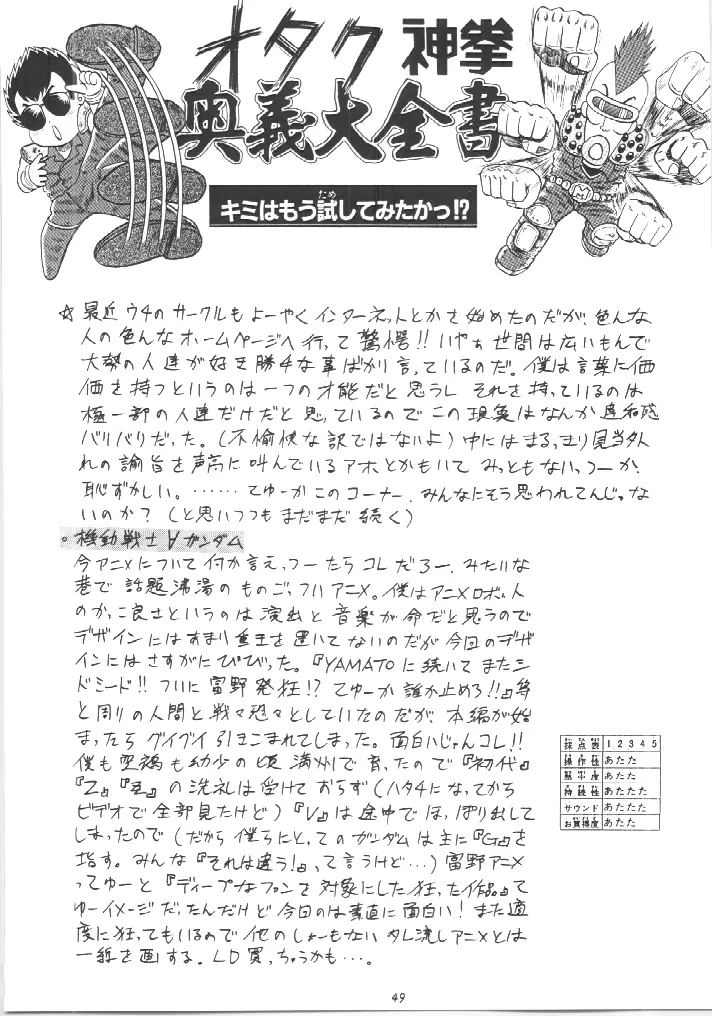 オタク神拳
奥義大全書
キミはもう試してみたかっ!?
ため
☆最近ウチのサークルもよーやくインターネットとかさ始めたのだが、色んな
人の色んなホームページへ行って驚愕!! いやぁ世間は広いもんで
大勢の人達が好き勝手な事ばかり言っているのだ。僕は言葉に価
価を持つというのは一つの才能だと思うし それを持っているのは
極一部の人達だけだと思っているので この現実はなんか違和感
バリバリだった。(不愉快な訳ではないよ)中にはまるっきり見当外
れの論旨を声高に叫んでいるアホとかもいて みっともないっつーか、
恥ずかしい。……てゆーかこのコーナー、みんなにそう思われてんじゃな
いのか?(と思いつつもまだまだ続く)
○機動戦士∀ガンダム
今アニメについて何か言えっつーたらコレだろー、みたいな
巷で話題沸湯のものごっついアニメ。僕はアニメロボットん
のかっこ良さというのは演出と音楽が命だと思うので
デザインにはあまり重きを置いてないのだが今回のデザ
インにはさすがにびびった。『YAMATOに続いてまたシ
ドミード!! ついに富野発狂!? てゆーか誰か止めろ!!』等
と周りの人間と戦々恐々としていたのだが、本編が始
まったらグイグイ引きこまれてしまった。面白いじゃんコレ!!
僕も も幼少の頃満州で育ったので『初代』
『Z』『ZZ』の洗礼は受けておらず(ハタチになってから
ビデオで全部見たけど)『V』は途中でほっぽり出して
しまったので(だから僕らにとってのガンダムは主に『G』を
指す。みんな『それは違う!』って言うけど…)富野アニメ
ってゆーと『ディープなファンを対象にした狂った作品』て
ゆーイメージだったんだけど今回のは素直に面白い!また適
度に狂ってもいるので他のしょーもないタレ流しアニメとは
一線を画する。LD買っちゃうかも…。
採点表 1 2 3 4 5
操作性 あたた
熱中度 あたた
持続性 あたたたた
サウンド あたたた
お買得度 あたた
49